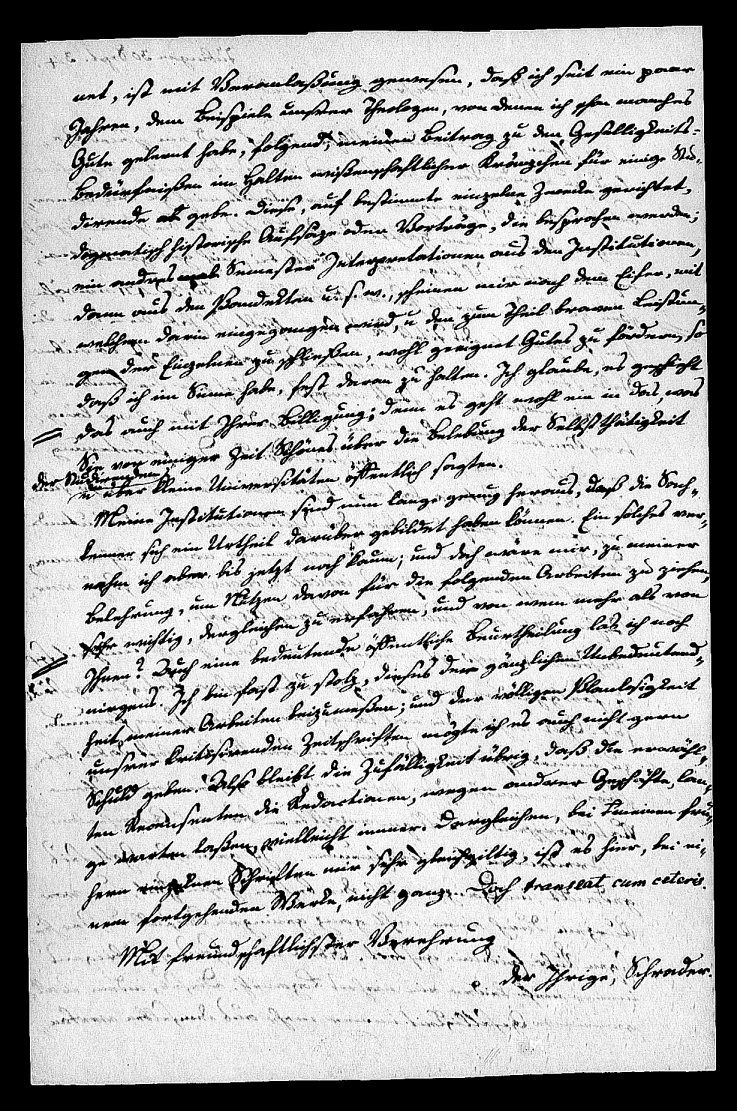 net, ist mit Veranlaßung gewesen, daß ich seit ein paar
Jahren, dem Beispiele unsrer Theologen, von denen ich schon manches
Gute gelernt habe, folgend, meinen Beitrag zu den Geselligkeits-
Bedürfnißen im Halten wißenschaftlicher Kränzchen für einige Stu-
dirende ab gebe. Diese, auf bestimmte einzelne Zwecke gerichtet,
dogmatisch historische Aufsäze oder Vorträge, die besprochen werden;
ein anderes mal Semester Interpretationen aus den Institutionen,
dann aus den Pandekten u. s. w., scheinen mir nach dem Eifer, mit
welchem darin eingegangen wird, u den zum Theil braven Leistun-
gen der Einzelnen zu schließen, wohl geeignet Gutes zu fördern, so
daß ich im Sinne habe, fest daran zu halten. Ich glaube, es geschieht
das auch mit Ihrer Billigung; denn es geht wohl ein in das, was
Sie vor einiger Zeit Schönes über die Belebung der Selbstthätigkeit
der Studirenden
u über kleine Universitäten öffentlich sagten.
Meine Institutionen sind nun lange genug heraus, daß die Sach-
kenner sich ein Urtheil darüber gebildet haben können. Ein solches ver-
nahm ich aber bis jetzt noch kaum; und doch wäre mir, zu meiner
Belehrung, um Nutzen davon für die folgenden Arbeiten zu ziehen,
sehr wichtig, dergleichen zu erfahren, und von wem mehr als von
Ihnen? Auch eine bedeutende öffentliche Beurtheilung las ich noch
nirgens. Ich bin fast zu stolz, dieses der gänzlichen Unbedeutend-
heit meiner Arbeiten beizumeßen; und der völligen Planlosigkeit
unsrer kritisirenden Zeitschriften mögte ich es auch nicht gern
Schuld geben. Also bleibt die Zufälligkeit übrig, daß die erwähl-
ten Recensenten die Redactionen, wegen anderer Geschäfte, lan-
ge warten laßen, vielleicht immer. Dergleichen, bei kleinen frü-
hern einzelnen Schriften mir sehr gleichgiltig, ist es hier, bei ei-
nem fortgehenden Werke, nicht ganz. Doch transeat cum ceteris.
Mit freundschaftlichster Verehrung
der Ihrige, Schrader.